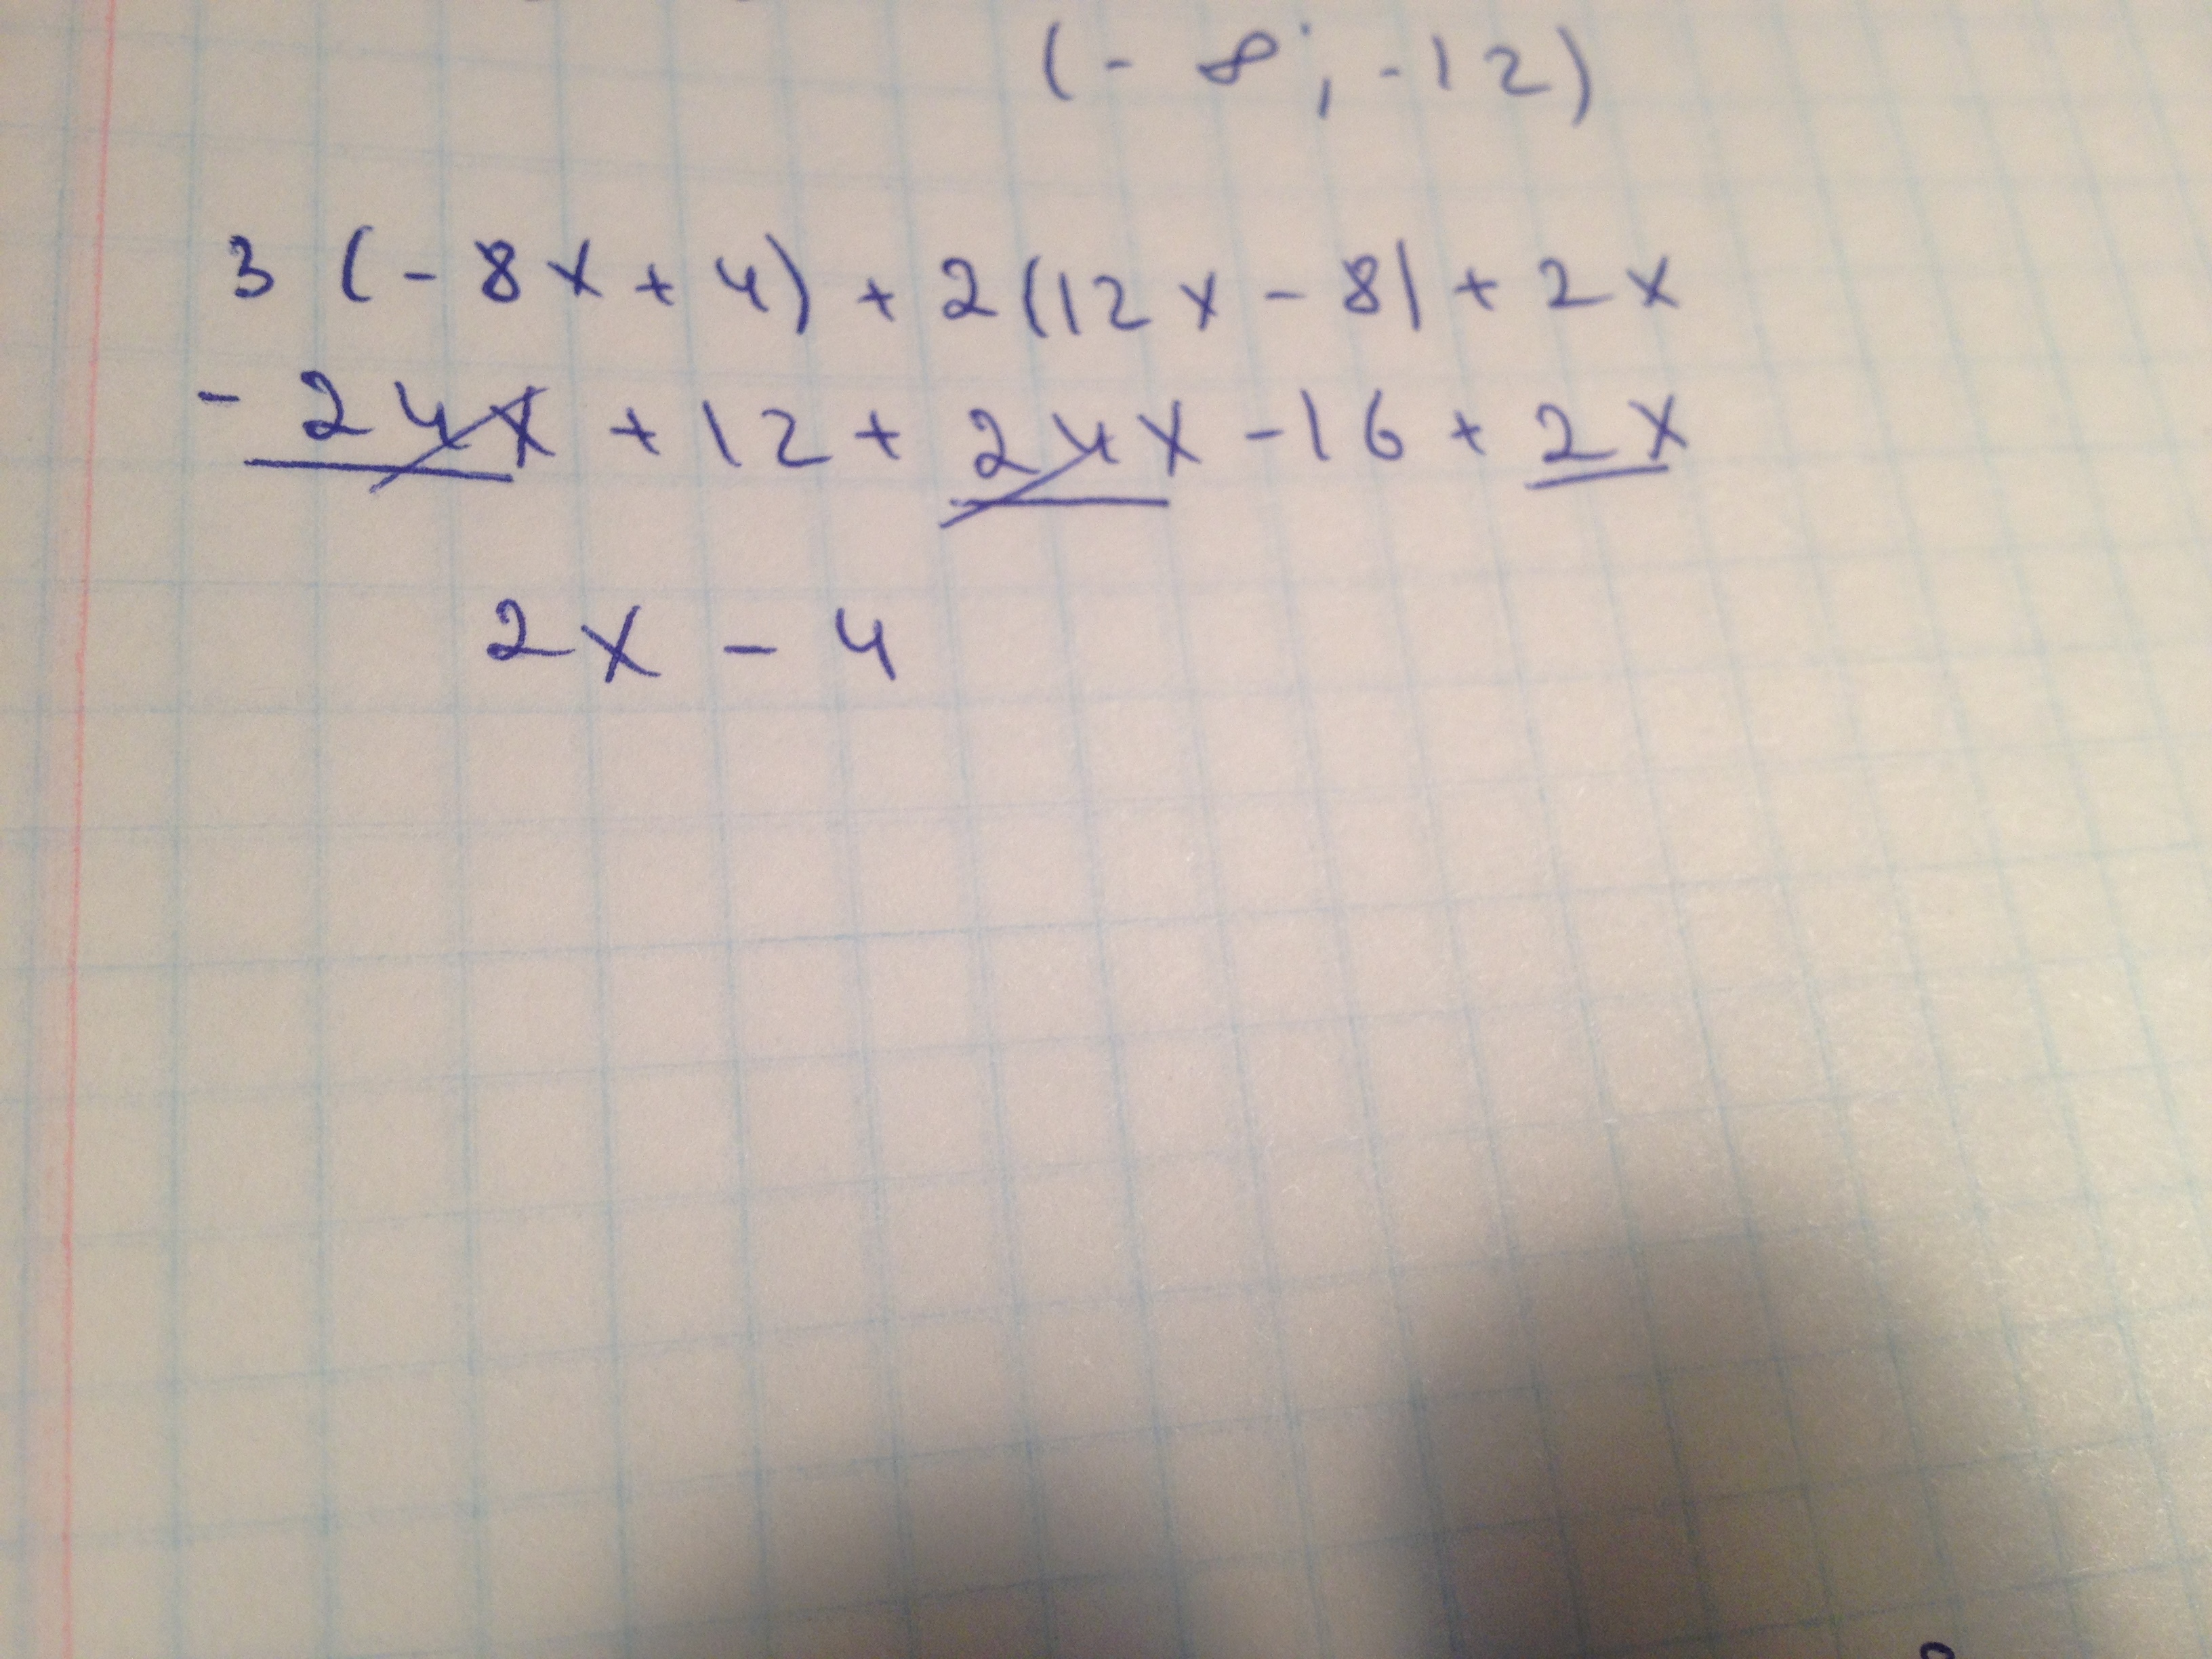 (- ∞; -12)
3 (- 8x + 4) + 2(12x - 8) + 2x
- 24x + 12 + 24x - 16 + 2x
2x - 4